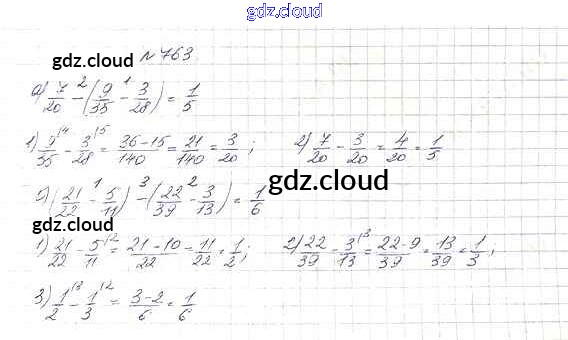 gdz.cloud
gdz.cloud
№ 763
а) 7/20 - (9/35 - 3/28) = 1/5
2 1
1) 9/35 - 3/28 = 36-15/140 = 21/140 = 3/20 ; 2) 7/20 - 3/20 = 4/20 = 1/5
\4 \5
б) (21/22 - 5/11) - (22/39 - 3/13) = 1/6
1 3 2
gdz.cloud
gdz.cloud
1) 21/22 - 5/11 = 21-10/22 = 11/22 = 1/2 ; 2) 22/39 - 3/13 = 22-9/39 = 13/39 = 1/3 ;
\2 \3
3) 1/2 - 1/3 = 3-2/6 = 1/6
\3 \2